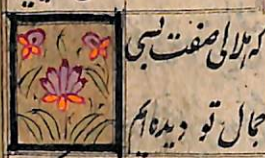 که هلالی صفت بسی
جمال تو دیده‌ایم